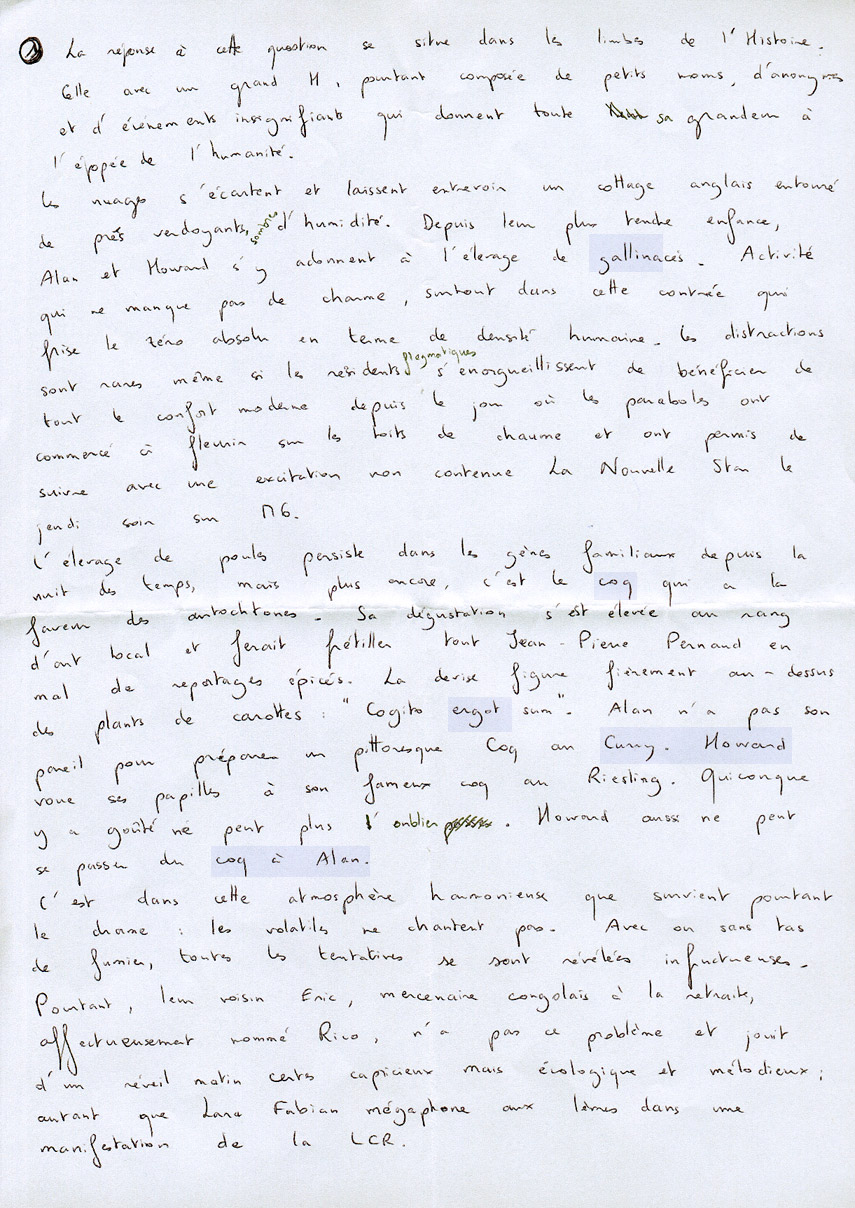 ① La réponse à cette question se situe dans les limbes de l'Histoire.
Celle avec un grand H, pourtant composée de petits noms, d'anonymes
et d'événements insignifiants qui donnent toute sa grandeur à
l'épopée de l'humanité.
Les nuages s'écartent et laissent entrevoir un cottage anglais entouré
de prés verdoyants, sombres d'humidité. Depuis leur plus tendre enfance,
Alan et Howard s'y adonnent à l'élevage de gallinacés. Activité
qui ne manque pas de charme, surtout dans cette contrée qui
frise le zéro absolu en terme de densité humaine. Les distractions
sont rares même si les résidents flegmatiques s'enorgueillissent de bénéficier de
tout le confort moderne depuis le jour où les paraboles ont
commencé à fleurir sur les toits de chaume et ont permis de
suivre avec une excitation non contenue La Nouvelle Star le
jeudi soir sur M6.
L'élevage de poules persiste dans les gènes familiaux depuis la
nuit des temps, mais plus encore, c'est le coq qui a la
faveur des autochtones. Sa dégustation s'est élevée au rang
d'art local et ferait frétiller tout Jean-Pierre Pernaud en
mal de reportages épicés. La devise figure fièrement au-dessus
des plants de carottes : "Cogito ergot sum". Alan n'a pas son
pareil pour préparer un pittoresque Coq au Curry. Howard
voue ses papilles à son fameux coq au Riesling. Quiconque
y a goûté ne peut plus l'oublier. Howard aussi ne peut
se passer du coq à Alan.
C'est dans cette atmosphère harmonieuse que survient pourtant
le drame : les volatils ne chantent pas. Avec ou sans tas
de fumier, toutes les tentatives se sont révélées infructueuses.
Pourtant, leur voisin Eric, mercenaire congolais à la retraite,
affectueusement nommé Rico, n'a pas ce problème et jouit
d'un réveil matin certes capricieux mais écologique et mélodieux ;
autant que Lara Fabian mégaphone aux lèvres dans une
manifestation de la LCR.